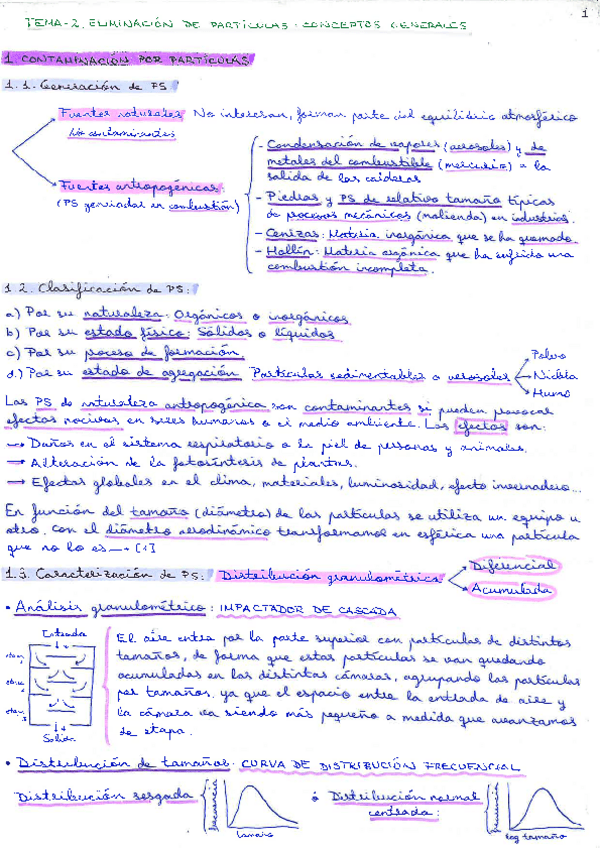 1
TEMA-2. ELIMINACIÓN DE PARTÍCULAS: CONCEPTOS GENERALES
1. CONTAMINACIÓN POR PARTÍCULAS
1.1. Generación de PS
Fuentes naturales No interesan, forman parte del equilibrio atmosférico
No contaminantes
Fuentes antropogénicas:
(PS generadas en combustión)
- Condensación de vapores (aerosoles) y de
metales del combustible (mercurio) a la
salida de las calderas
- Piedras y PS de relativo tamaño típicas
de procesos mecánicos (molienda) en industrias.
- Cenizas: Materia inorgánica que se ha quemado.
- Hollín: Materia orgánica que ha sufrido una
combustión incompleta.
1.2. Clasificación de PS:
a) Por su naturaleza: Orgánicos o inorgánicos
b) Por su estado físico: Sólidos o líquidos
c) Por su proceso de formación
d) Por su estado de agregación Partículas sedimentables o aerosoles
Polvo
Niebla
Humo
Las PS de naturaleza antropogénica son contaminantes si pueden provocar
efectos nocivos en seres humanos o el medio ambiente. Los efectos son:
→ Daños en el sistema respiratorio o la piel de personas y animales.
→ Alteración de la fotosíntesis de plantas.
→ Efectos globales en el clima, materiales, luminosidad, efecto invernadero...
En función del tamaño (diámetro) de las partículas se utiliza un equipo u
otro. Con el diámetro aerodinámico transformamos en esférica una partícula
que no lo es → [1]
1.3. Caracterización de PS: Distribución granulométrica
Diferencial
Acumulada
• Análisis granulométrico: IMPACTADOR DE CASCADA
Entrada
etapa 1
etapa 2
etapa 3
Salida
El aire entra por la parte superior con partículas de distintos
tamaños, de forma que estas partículas se van quedando
acumuladas en las distintas cámaras, agrupando las partículas
por tamaños, ya que el espacio entre la entrada de aire y
la cámara va siendo más pequeño a medida que avanzamos
de etapa.
• Distribución de tamaños: CURVA DE DISTRIBUCIÓN FRECUENCIAL
Distribución sesgada
frecuencia
tamaño
ó Distribución normal
centrada:
log tamaño